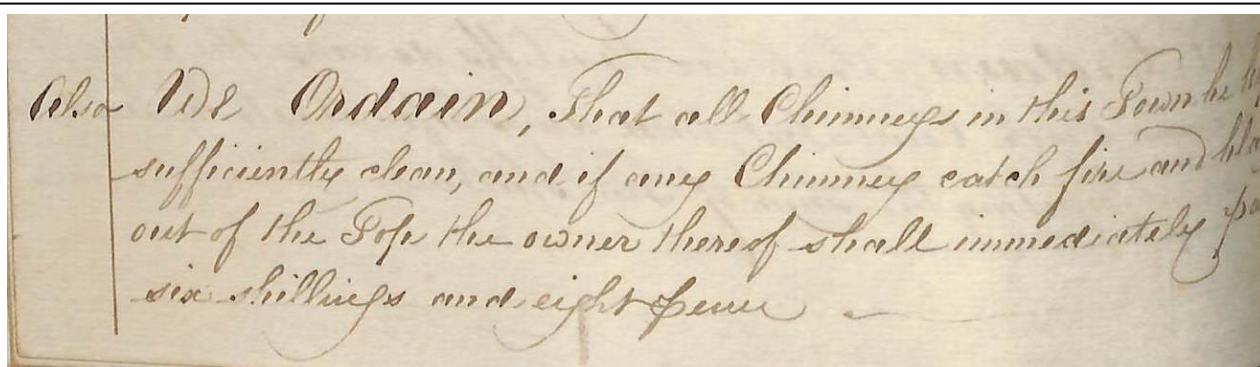 Also We Ordain, That all Chimneys in this Town be
sufficiently clean, and if any Chimney catch fire and
out of the Top the owner thereof shall immediately
six shillings and eight pence